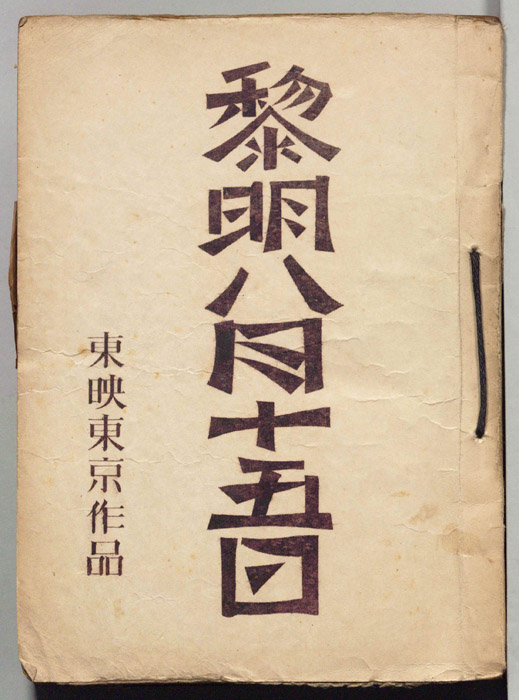 黎明八月十五日
東映東京作品